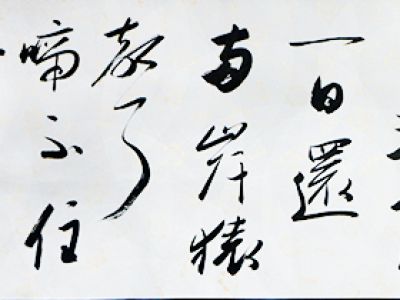 一日還
兩岸猿
聲
啼不住